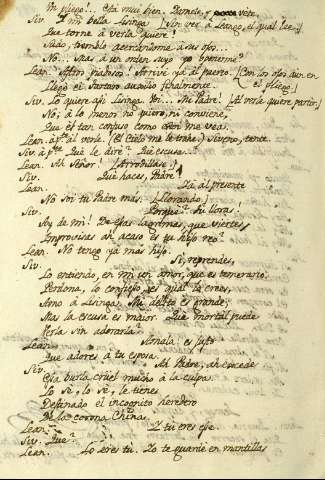 Un pliego!.. Está muy bien. Dámele, y vete.
Y mi bella Lisinga? (Sin ver à Leango, el qual lee.)
Que torne à verla quiere!
Sudo, tremblo acercandome à sus ojos...
No... Mas à un orden suyo yo oponerme?
Lean. Astros piadosos. Arrivè ya al puerto. (Con los ojos aun en
Llegò el Tartaro auxilio finalmente. el pliego)
Siv. Lo quiere asi Lisinga. Voi... Mi Padre! (Al verle quiere partir.)
No, à lo menor no quiero, ni conviene,
Que él tan confuso como me vea.
Lean. à p.te al verle. (El Cielo me le trahe.) Siveno, tente.
Siv. à p.te Què le dirè? Què escusa...?
Lean. Ah Señor! (Arrodillase.)
Siv. Què haces, Padre?
Lean. Ya al presente
No soi tu Padre mas. (Llorando.)
Siv. Porquè? Tu lloras!
Ay de mi! De essas lagrimas, que viertes
Improvisas ah acaso es tu hijo reo?
Lean. No tengo ya mas hijo.
Siv. Si, reprendes,
Lo entiendo, en mi un amor, que es temerario.
Perdona, lo confieso, es qual la crees,
Amo à Lisinga. Mi delito es grande;
Mas la escusa es maior. Què mortal puede
Verla sin adorarla?
Lean. Amala: es justo
Que adores à tu esposa.
Siv. Ah Padre, ah excede
Esta burla cruel mucho à la culpa.
Lo sè, lo sè, le tienes
Destinado el incognito heredero
De la corona China.
Lean. Y tu eres ese.
Siv. Que?
Lean. Lo eres tu. Yo te guardè en mantillas